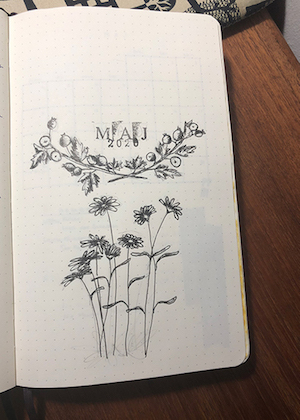 MAJ
2020